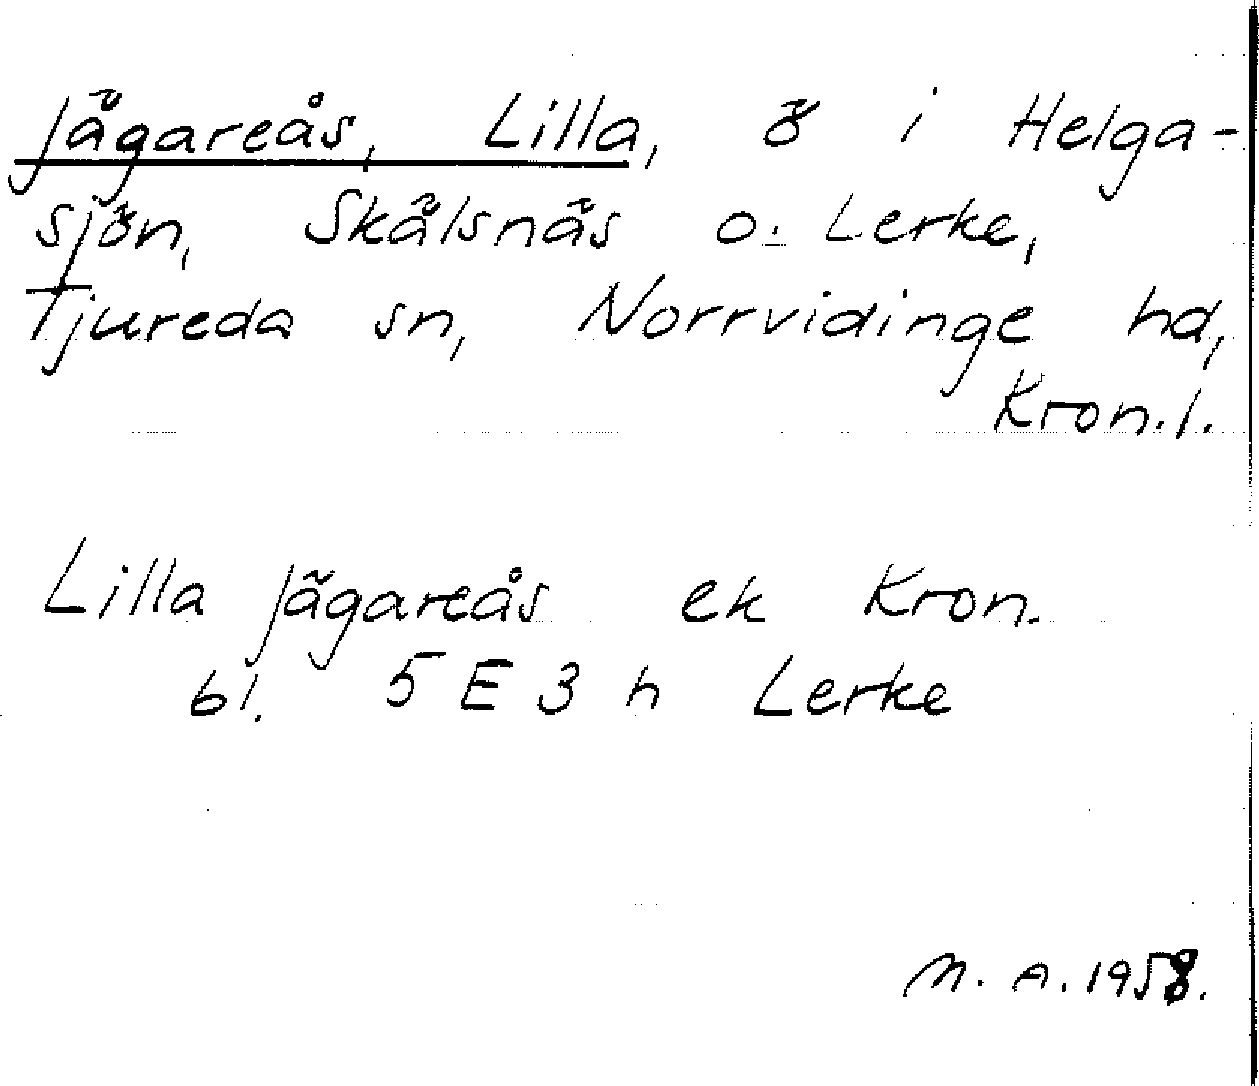 Jägareås, Lilla, ö i Helga-
sjön, Skälsnäs o. Lerke,
Tjureda sn, Norrvidinge hd,
Kron.l.
Lilla Jägareås ek Kron.
bl. 5 E 3 h Lerke
M. A. 1958.